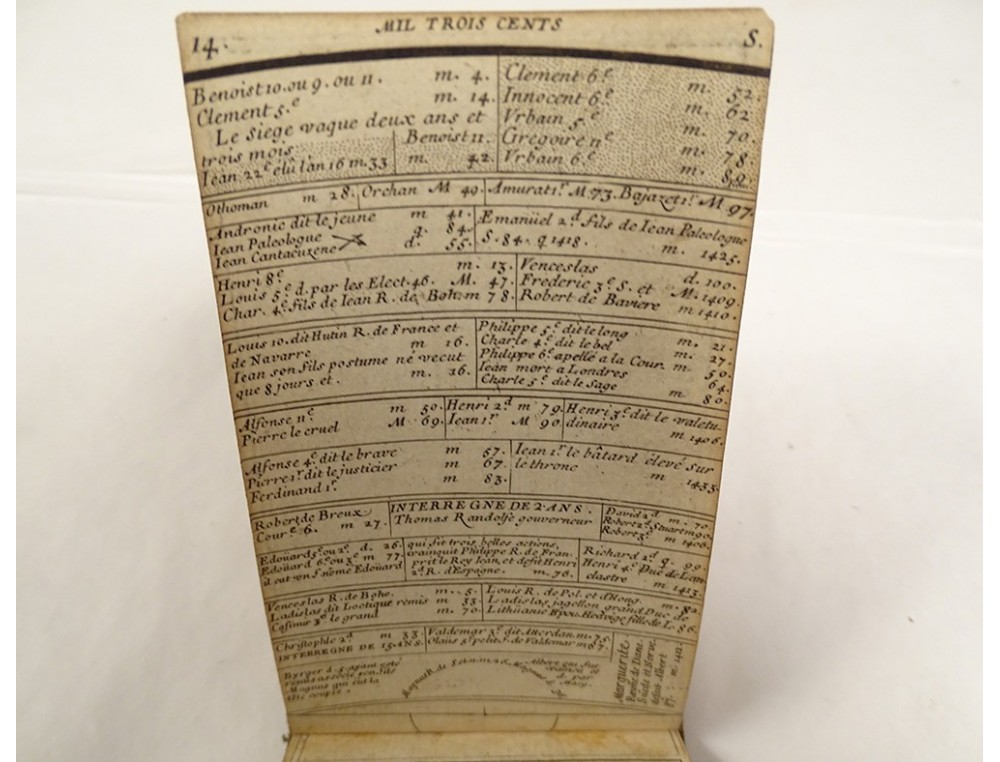 MIL TROIS CENTS
14. S.
Benoist 10. ou 9. ou 11. m. 4.
Clement 5.e m. 14.
Le siege vaque deux ans et
trois mois.
Iean 22.e elû l'an 16 m. 33
Benoist 11.
m. 42.
Clement 6.e m. 52.
Innocent 6.e m. 62
Vrbain 5.e m. 70.
Gregoire 11e m. 78
Vrbain 6.e m. 89.
Othoman m 28.
Orchan M 49.
Amurat 1.r M. 73. Bajazet 1.r M 97.
Andronic dit le jeune m 41.
Iean Paleologue q. 84.
Iean Cantacuzene d. 55.
Æmanüel 2.d fils de Iean Paleologue
S. 84. q 1418. m. 1425.
Henri 8.e m. 13.
Louis 5.e d. par les Elect. 46. M. 47.
Char. 4.e fils de Iean R. de Boh. m 78.
Venceslas d. 100.
Frederic 3.e S. et M. 1409.
Robert de Baviere m 1410.
Louis 10. dit Hutin R. de France et
de Navarre m 16.
Iean son fils postume né vecut
que 8 jours et. m. 16.
Philippe 5.e dit le long m. 21.
Charle 4.e dit le bel m. 27.
Philippe 6.e apellé a la Cour. m 50.
Iean mort a Londres 64.
Charle 5.e dit le Sage m 80.
Alfonse 11.e m 50.
Pierre le cruel M 69.
Henri 2.d m 79.
Iean 1.r M 90.
Henri 3.e dit le valetu-
dinaire m 1406.
Alfonse 4.e dit le brave m 57.
Pierre 1.r dit le justicier m 67.
Ferdinand 1.r m 83.
Iean 1.r le bâtard élevé sur
le throne m 1433.
Robert de Breux
Cour.e 6. m 27.
INTERREGNE DE 2 ANS.
Thomas Randolfe gouverneur
David 2.d m. 70.
Robert 2.d Stuart m 90.
Robert 3.e m 1406.
Edoüard 5.e ou 2.e d. 26.
Edoüard 6.e ou 3.e m 77.
il eut un f. nomé Edoüard
qui fit trois belles actions,
vainquit Philippe R. de Fran-
prit le Roy Iean, et defit Henri
2.d R. d'Espagne. m. 76.
Richard 2.d q. 99.
Henri 4.e Duc de Lan-
clastre m 1413.
Venceslas R. de Bohe. m. 5.
Ladislas dit Loctique remis m 33
Casimir 3.e le grand m. 70.
Louis R. de Pol. et d'Hong. m. 82
Ladislas jagellon grand Duc de
Lithüanie
Christophle 2.d m 33
INTERREGNE DE 15 ANS.
Valdemar 3.e dit m. 75.
Olaüs 5.e petit f. de Valdemar m 87.
Magnus
Albert
Marguerite